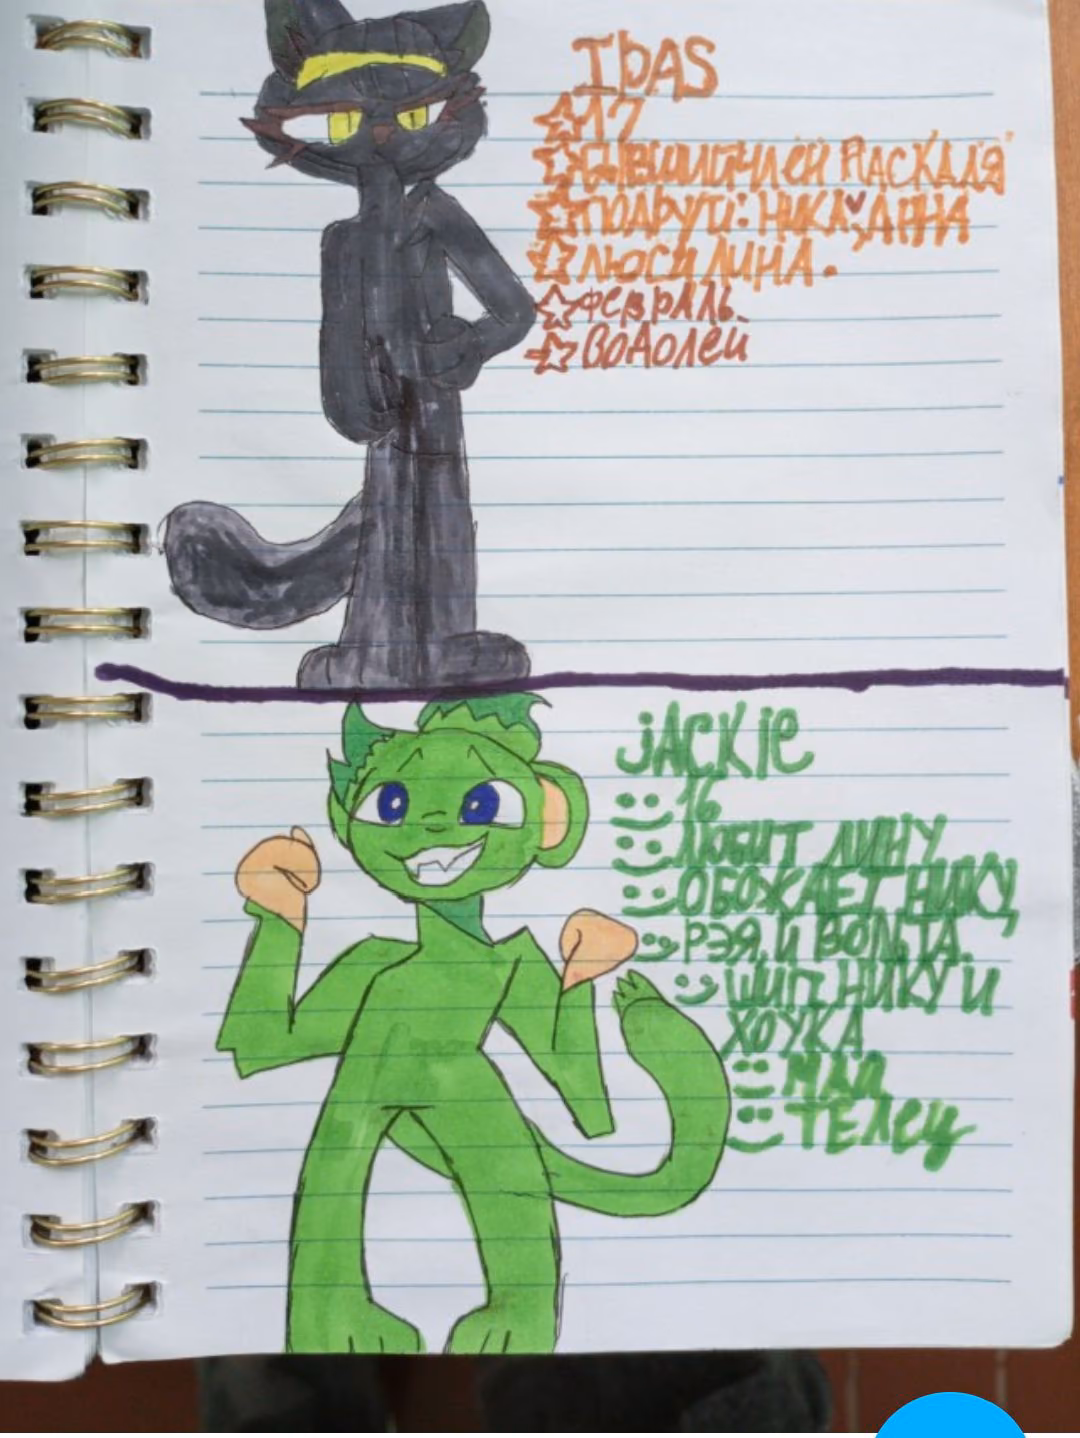 IDAS
17
РАСКАЛЯ
ПОДРУГИ: НИКА, АННА
ЛЮСИ ЛИНА.
ФЕВРАЛЬ.
ВОДОЛЕЙ
JACKIE
16
ЛЮБИТ ЛИНУ
ОБОЖАЕТ НИКУ,
РЭЯ, И ВОЛЬТА.
ШИП. НИКУ И
ХОУКА
МАЙ
ТЕЛЕЦ